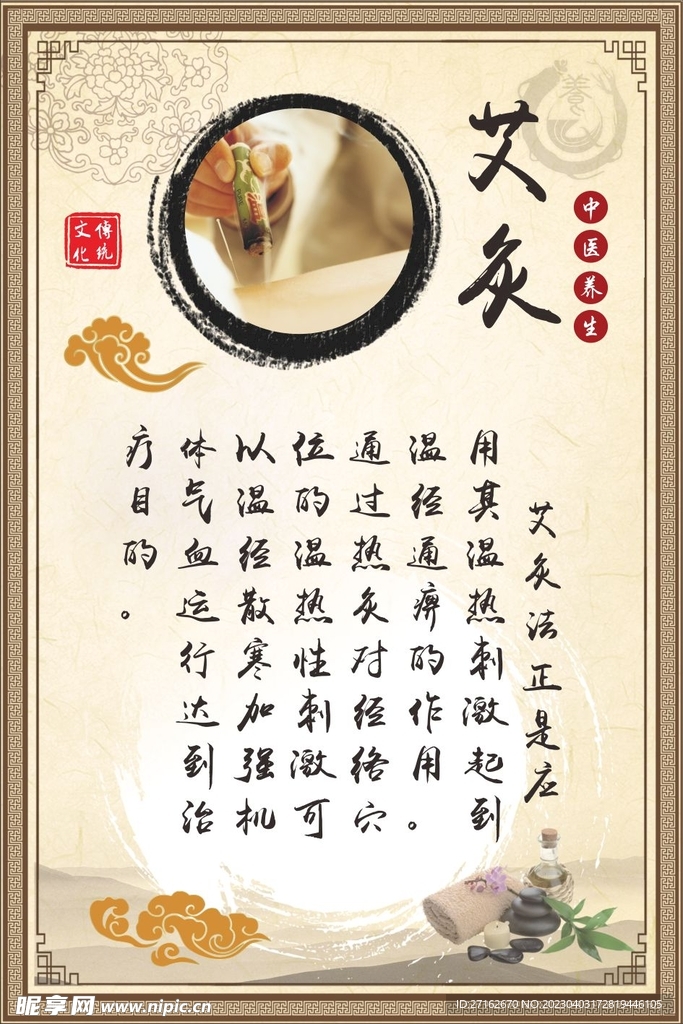 艾灸
中医养生
養心
傳統
文化
艾灸法正是应
用其温热刺激起到
温经通痹的作用。
通过热灸对经络穴
位的温热性刺激可
以温经散寒加强机
体气血运行达到治
疗目的。
昵享网 www.nipic.cn
ID:27162670 NO:20230403172819446105